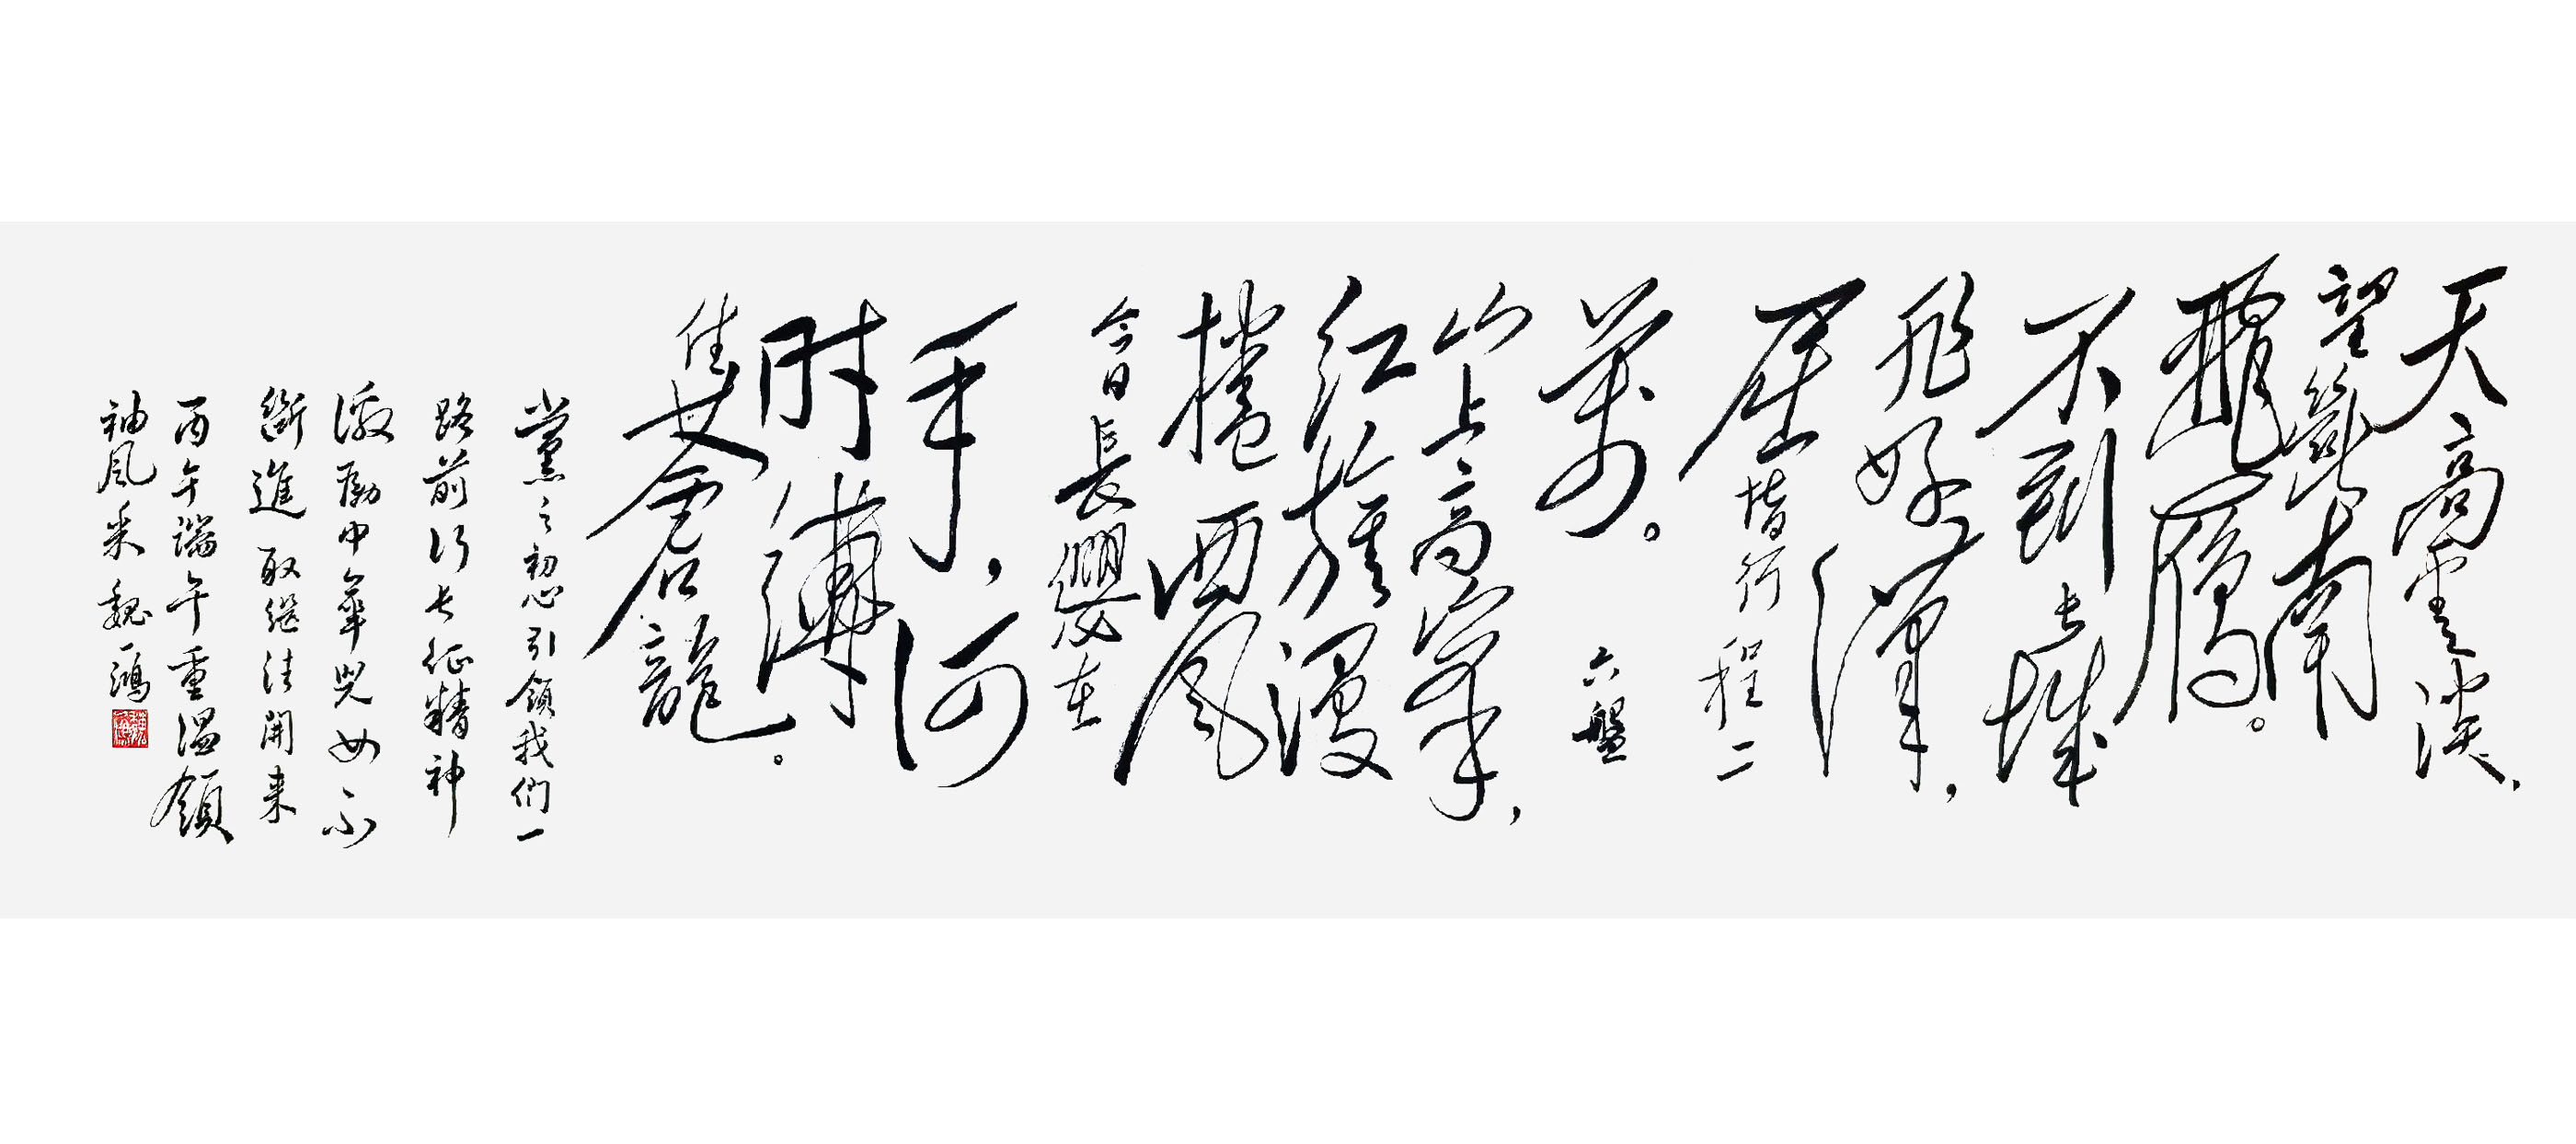 天高雲淡，
望斷南
飛雁。
不到长城
非好漢，
屈指行程二
萬。六盤
山上高峯，
红旗漫
捲西风
今日長纓在
手，何
时縛
住蒼龍。
黨之初心引領我们一
路前行长征精神
激励中華兒女不
斷進取继往開来
丙午端午重温領
袖风采魏鴻